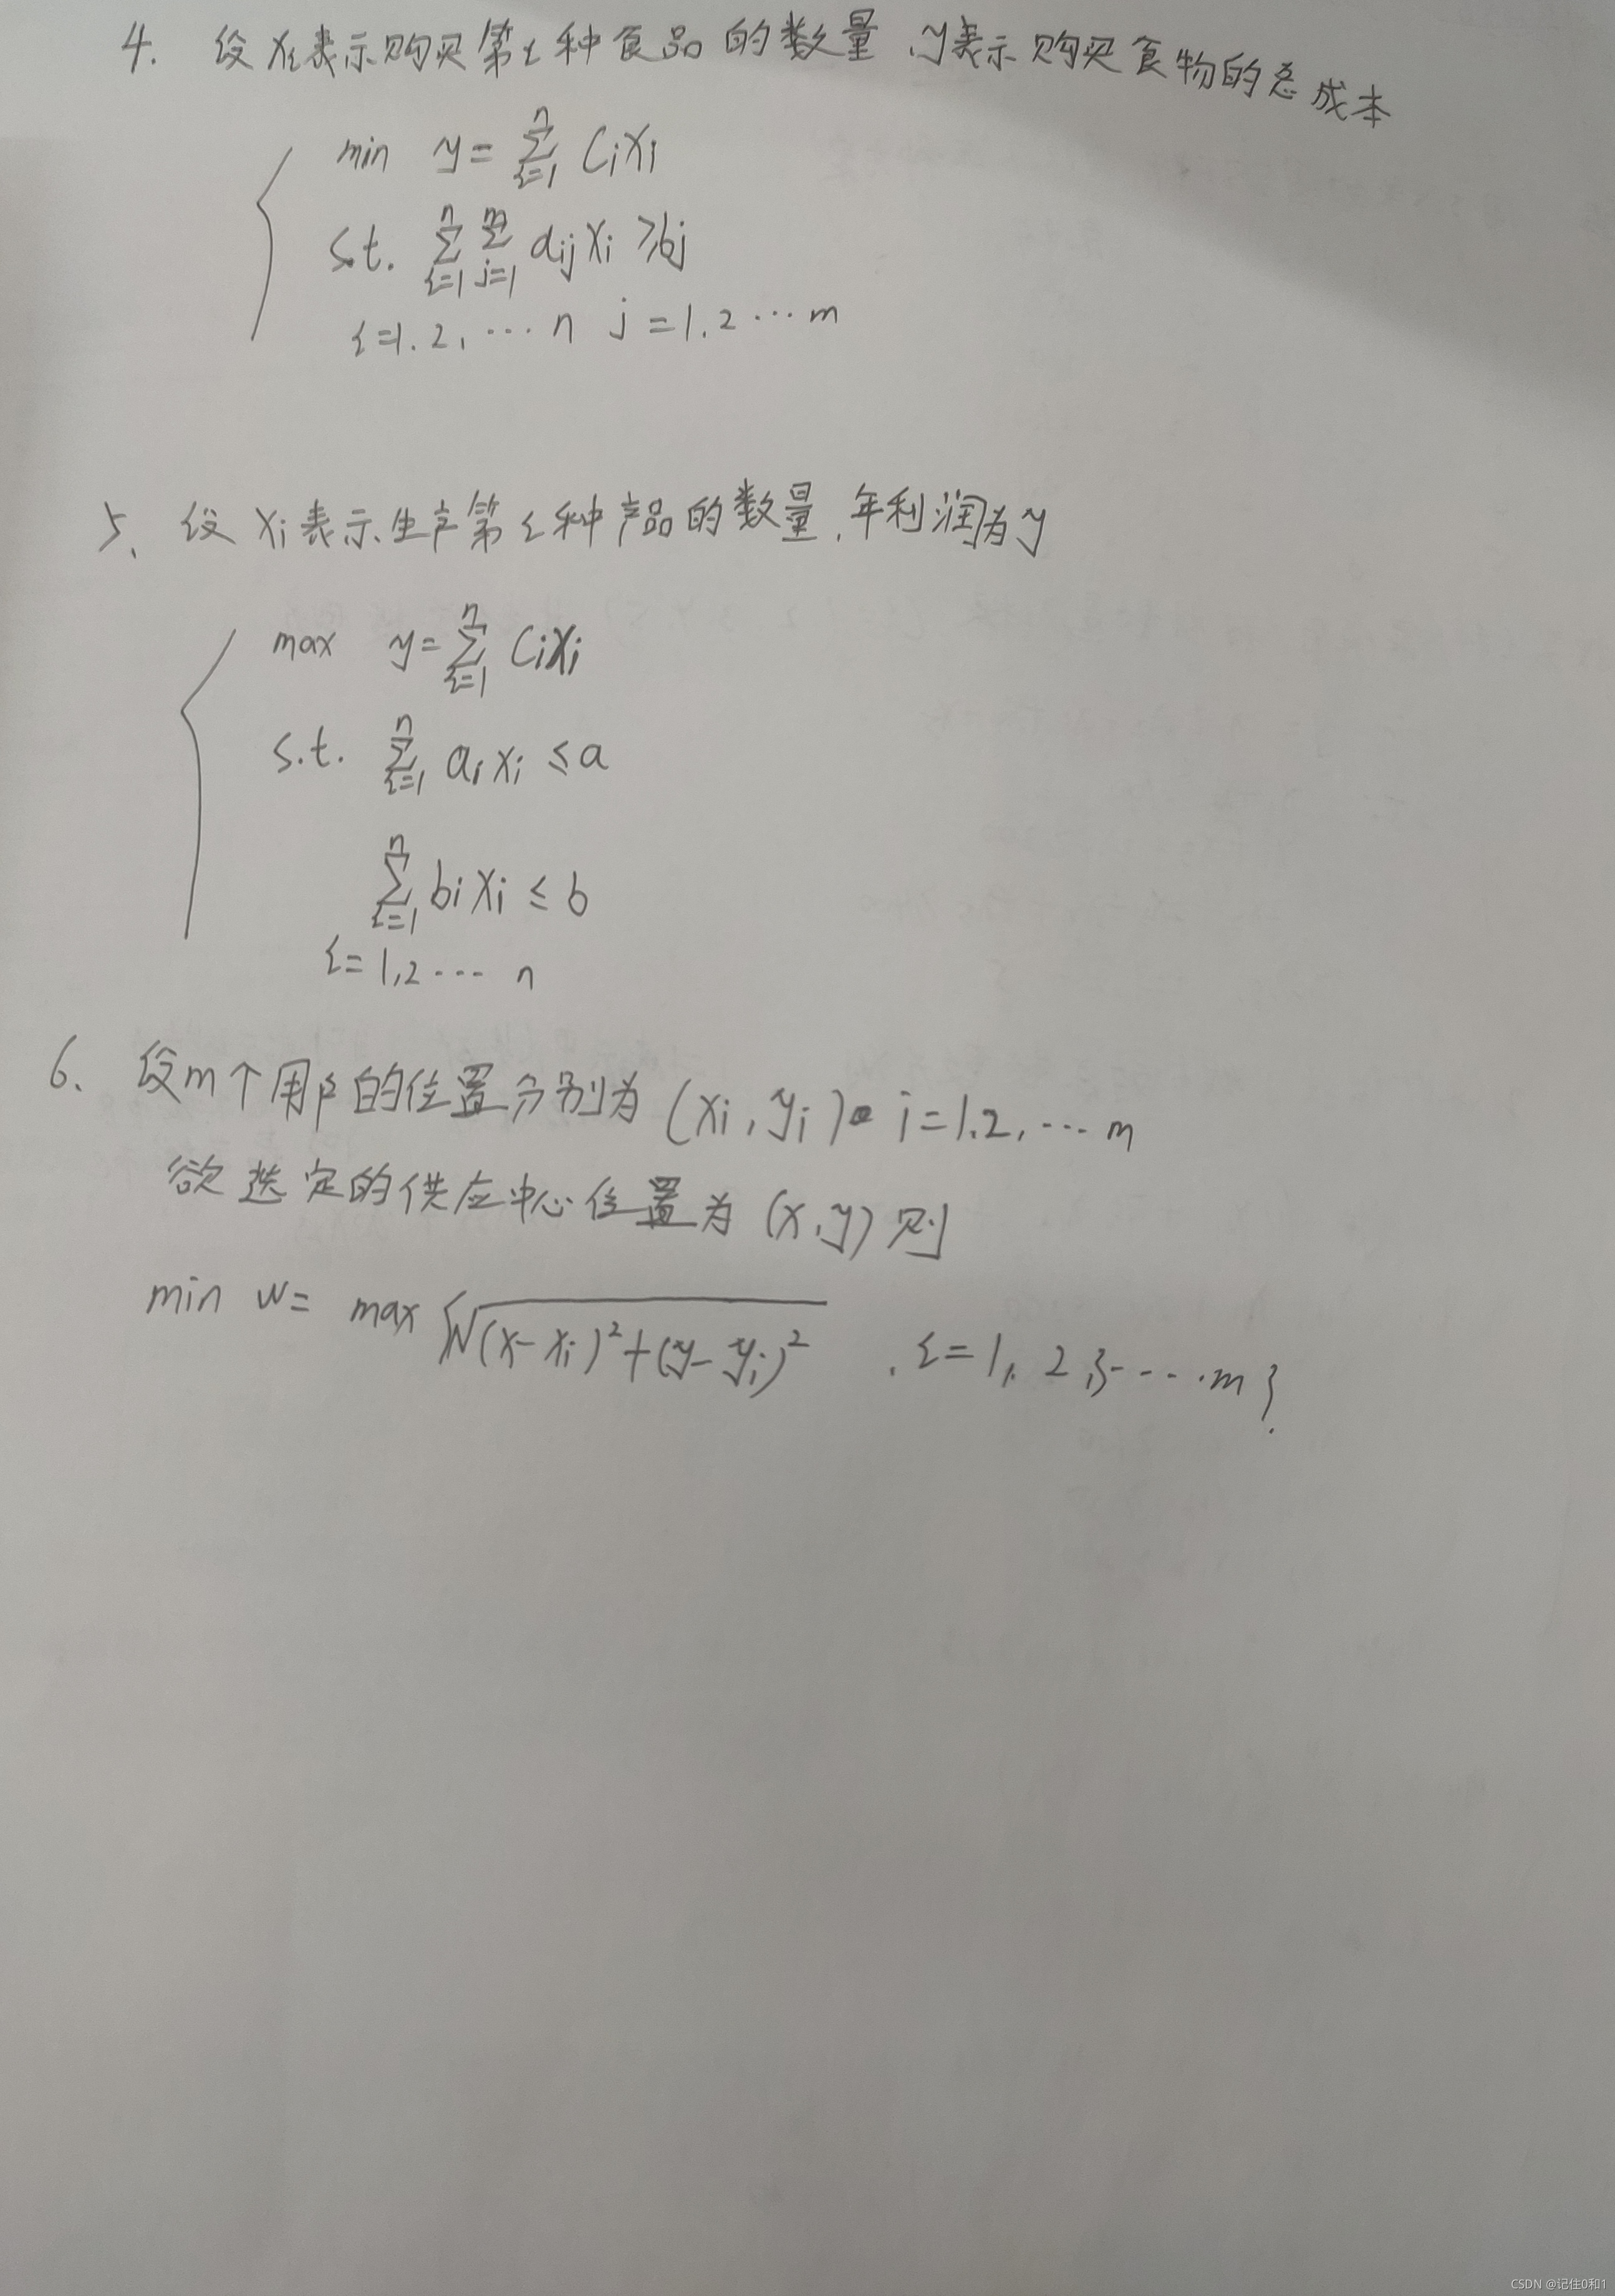 4. 设 xᵢ表示购买第i种食品的数量,y表示购买食物的总成本
min y = ∑_{i=1}^{n} cᵢxᵢ
s.t. ∑_{i=1}^{n} ∑_{j=1}^{m} aᵢⱼxᵢ ≥ bⱼ
i=1.2,⋯n j=1.2⋯m
5、设 xᵢ表示生产第i种产品的数量,年利润为y
max y= ∑_{i=1}^{n} cᵢxᵢ
s.t. ∑_{i=1}^{n} aᵢxᵢ ≤ a
∑_{i=1}^{n} bᵢxᵢ ≤ b
i=1,2⋯ n
6、设m个用户的位置分别为(xᵢ,yᵢ) i=1.2,⋯m
欲选定的供应中心位置为(x,y)则
min w= max {√((x-xᵢ)²+(y-yᵢ)²) , i=1, 2,3⋯m}.
CSDN @记住0和1